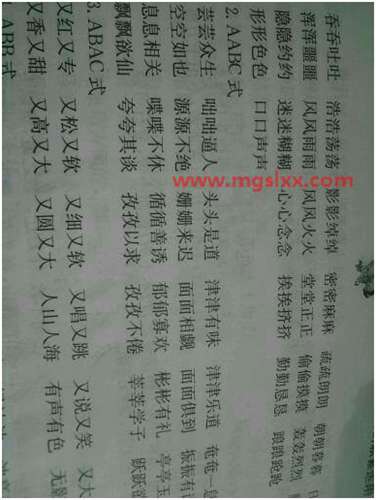 吞吞吐吐 浩浩荡荡 影影绰绰 密密麻麻 疏疏朗朗 朝朝暮暮
浑浑噩噩 风风雨雨 风风火火 堂堂正正 偷偷摸摸 轰轰烈烈
隐隐约约 迷迷糊糊 心心念念 挨挨挤挤 勤勤恳恳 踉踉跄跄
形形色色 口口声声
2. AABC 式
芸芸众生 咄咄逼人 头头是道 津津有味 津津乐道 奄奄一
空空如也 源源不绝 姗姗来迟 面面相觑 面面俱到 振振有
息息相关 喋喋不休 循循善诱 郁郁寡欢 彬彬有礼 亭亭玉
飘飘欲仙 夸夸其谈 孜孜以求 孜孜不倦 莘莘学子 跃跃欲
3. ABAC 式
又红又专 又松又软 又细又软 又唱又跳 又说又笑 又大
又香又甜 又高又大 又圆又大 人山人海 有声有色 无
ABB 式
www.mgslxx.com